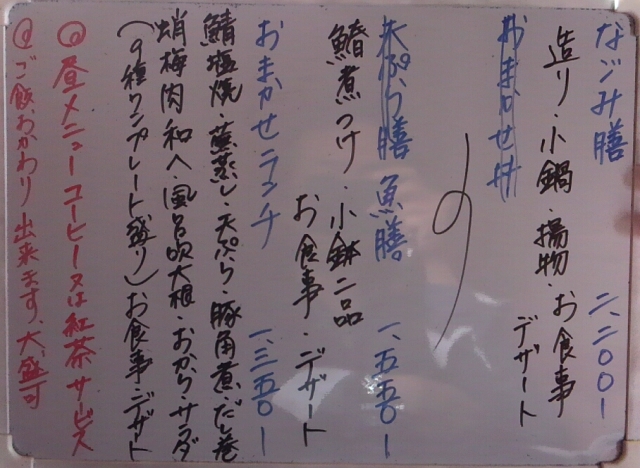 なごみ膳 二、二〇〇一
造り・小鍋・揚物・お食事
デザート
おまかせ丼
天ぷら膳 魚膳 一、五五〇一
鰆煮つけ・小鉢二品
お食事・デザート
おまかせランチ 一、三五〇一
鯖塩焼・蕪蒸し・天ぷら・豚角煮・だし巻
蛸梅肉和へ・風呂吹大根・おから・サラダ
(9種ワンプレート盛り)お食事・デザート
◎昼メニューコーヒー又は紅茶サービス
◎ご飯おかわり出来ます、大盛可